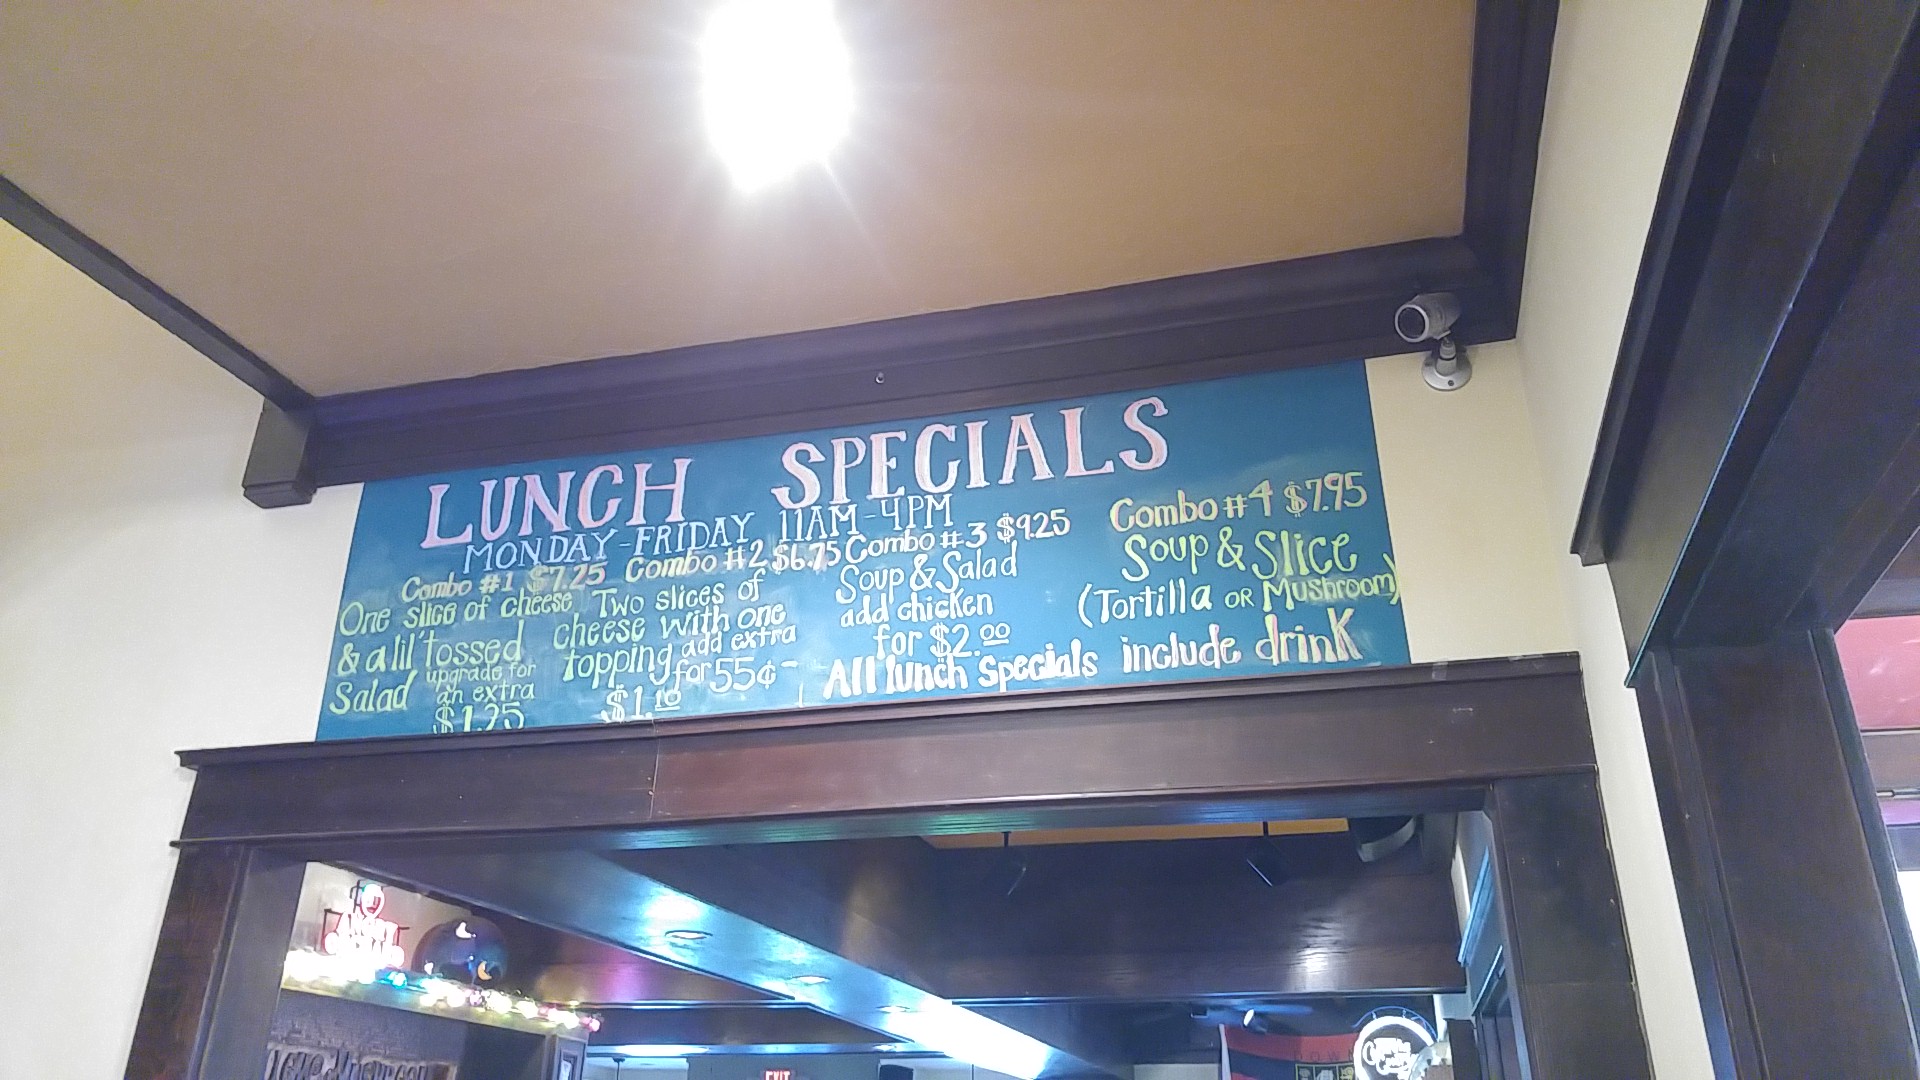 LUNCH SPECIALS
MONDAY-FRIDAY 11AM-4PM
Combo #1 $7.25
One slice of cheese
& a lil' tossed
Salad
upgrade for
an extra
$1.25
Combo #2 $6.75
Two slices of
cheese with one
topping add extra
for 55¢-
$1.10
Combo #3 $9.25
Soup & Salad
add chicken
for $2.00
Combo #4 $7.95
Soup & Slice
(Tortilla OR Mushroom)
All lunch specials include drink
EXIT